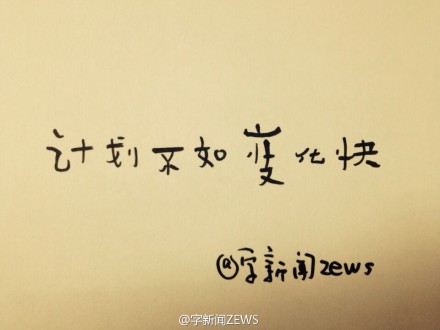 计划不如变化快
@字新闻zews
@字新闻ZEWS